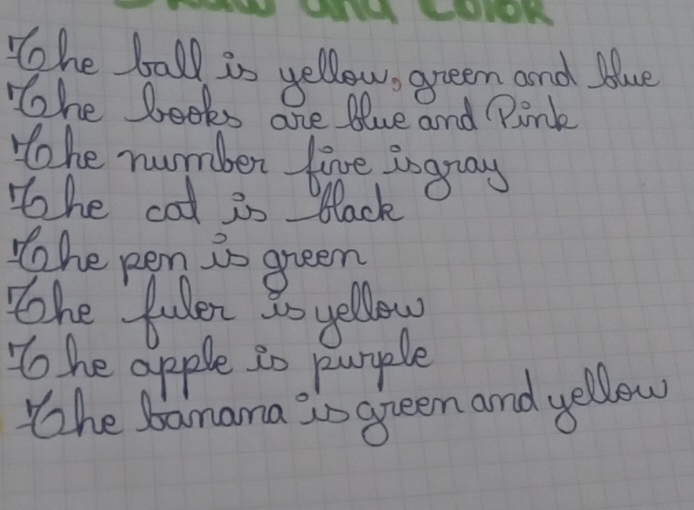 Draw and Color
The ball is yellow, green and blue
The books are blue and Pink
The number five is gray
The cat is black
The pen is green
The fuler is yellow
The apple is purple
The banana is green and yellow